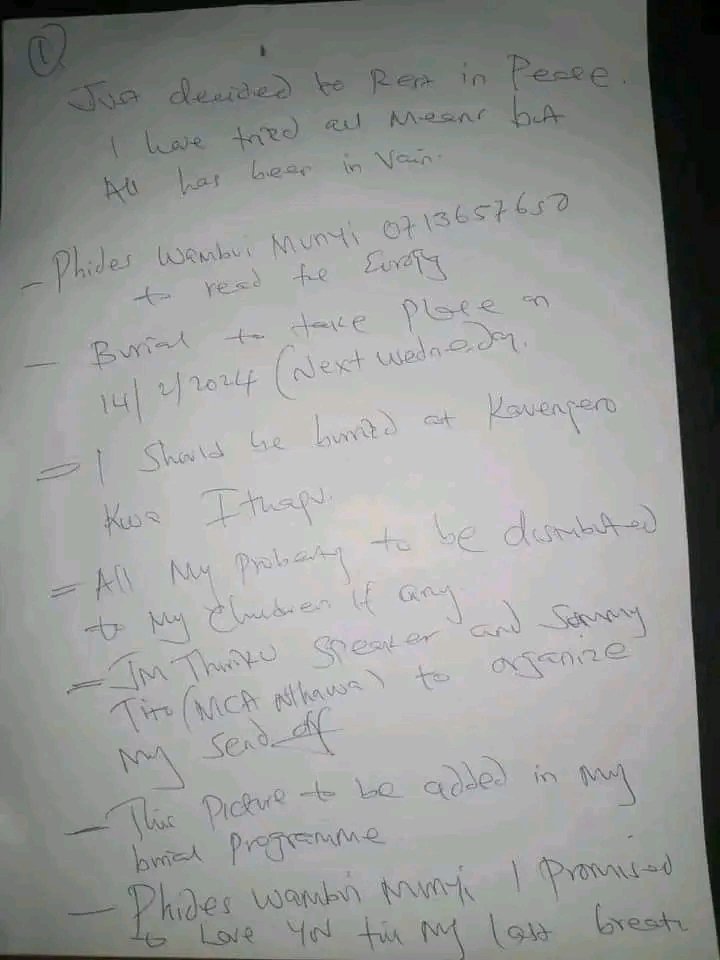 1
Just decided to Rest in Peace.
I have tried all Means but
All has been in Vain.
- Phides Wambui Munyi 0713657650
to read the Eurogy
- Burial to take place on
14/2/2024 (Next Wednesday.
= I should be burried at Kavengero
Kwa Ithagu.
= All My Probaty to be distributed
to My Children If any.
= JM Thiriku Speaker and Sammy
Tito (MCA Nthawa) to organize
My Send off
- This Picture to be added in My
burial Programme
- Phides Wambui Munyi I Promised
to Love You till My last breath